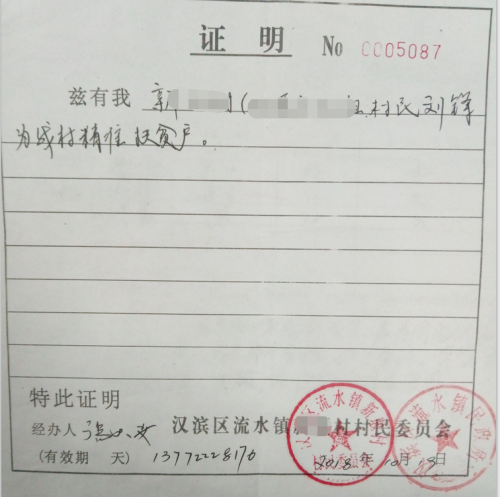 证 明 No 0005087
兹有我 新 村民刘锋
为我村精准扶贫户。
特此证明
经办人
汉滨区流水镇 村村民委员会
(有效期 天) 13772228176 2018 年 10 月 19 日